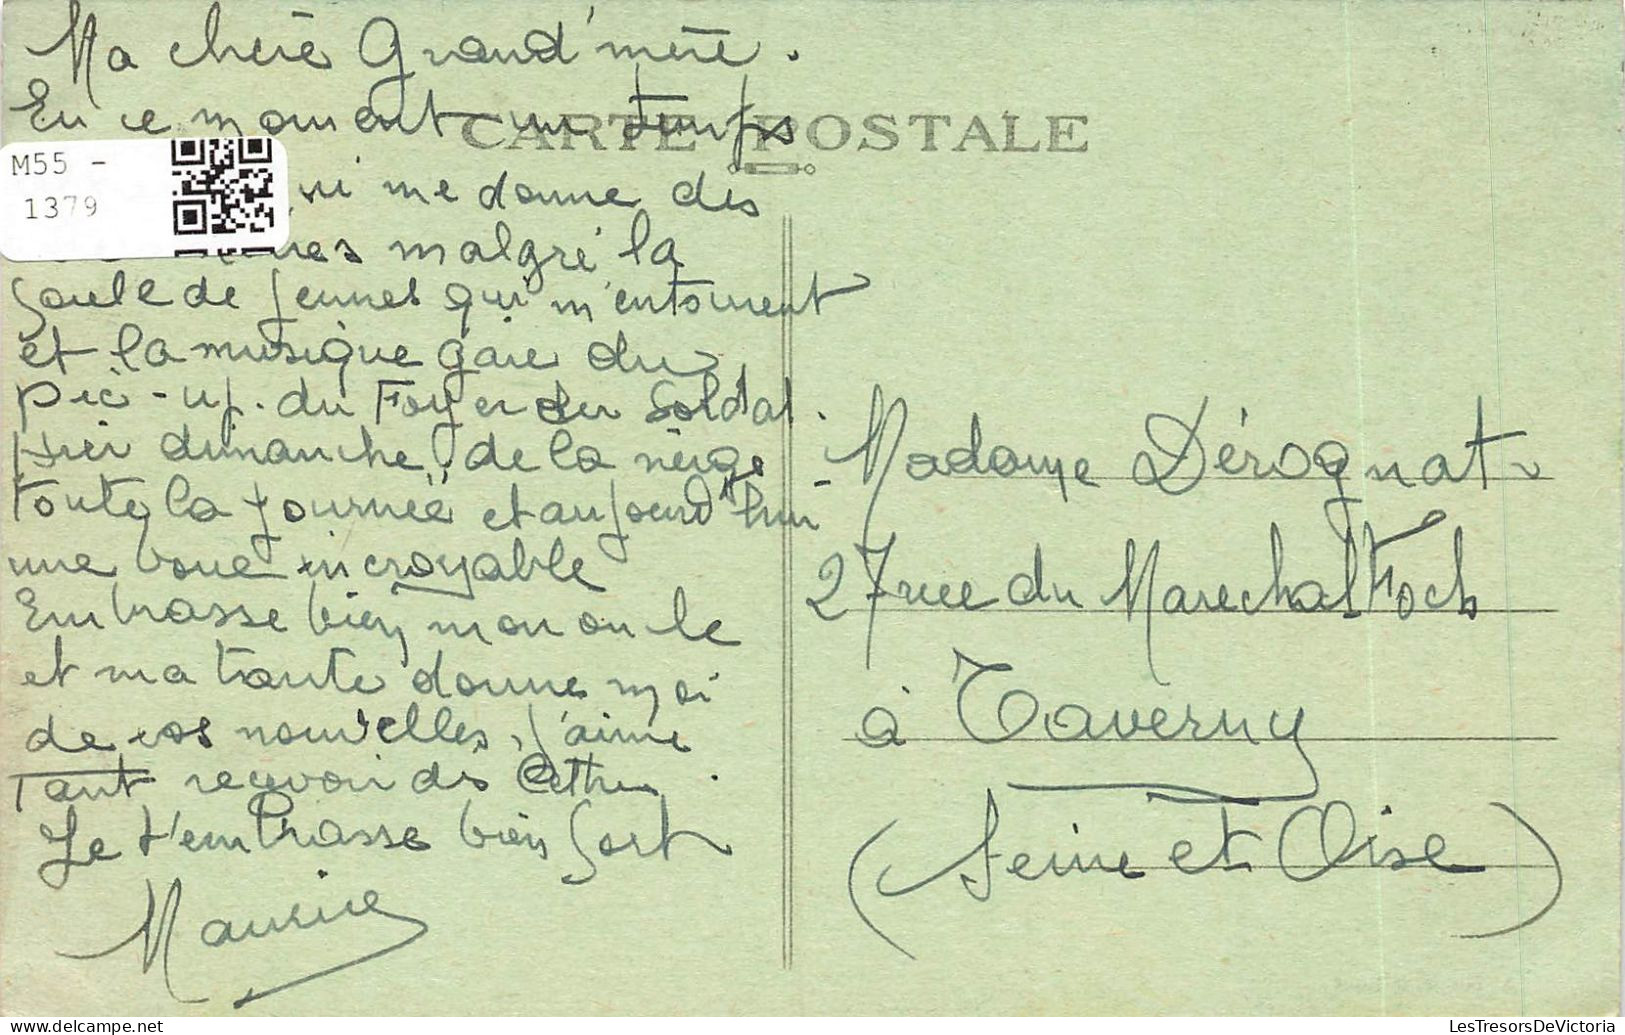 Ma chère Grand'mère.
En ce moment un temps
CARTE POSTALE
M55 -
1379
qui me donne des
malgré la
foule de jeunes qui m'entourent
et la musique gaie du
pic-up. du Foyer du Soldat.
hier dimanche, de la neige
toute la journée et aujourd'hui
une boue incroyable
Embrasse bien mon oncle
et ma tante donne moi
de vos nouvelles, j'aime
Tant recevoir des lettres.
Je t'embrasse bien fort
Maurice
Madame Dérognat
27 rue du Marechal Foch
à Taverny
(Seine et Oise)
delcampe.net
LesTresorsDeVictoria